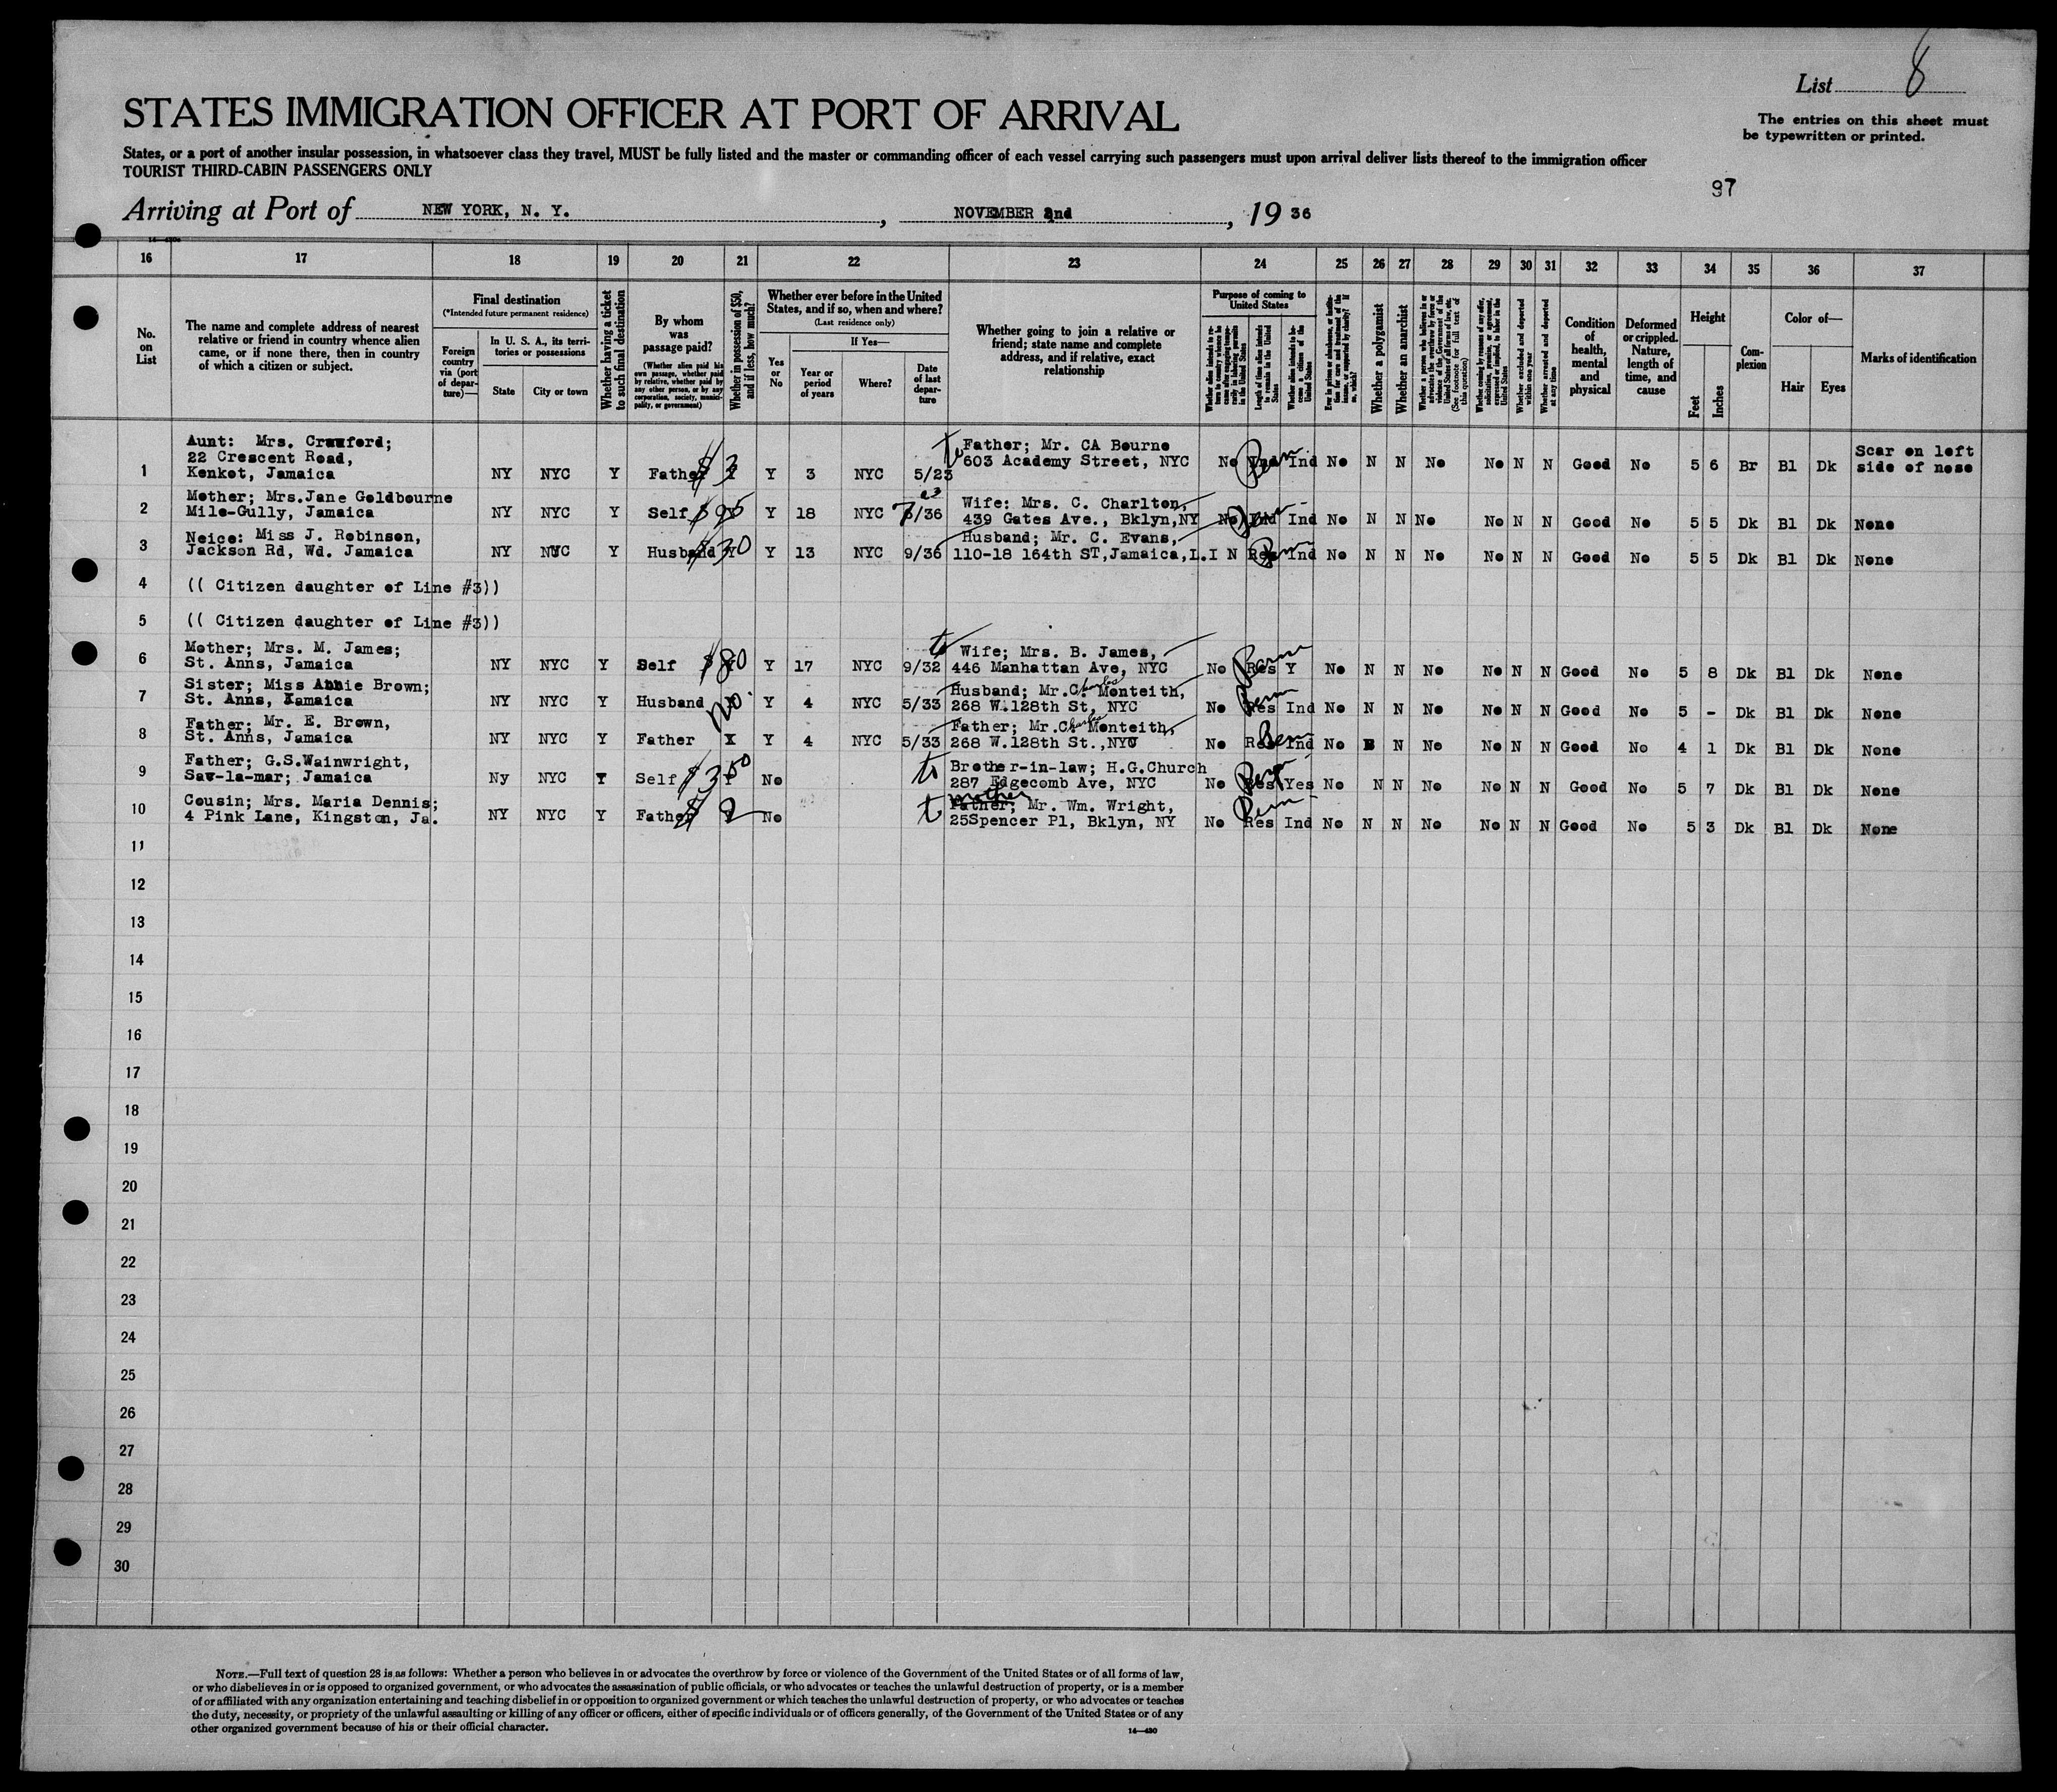 List 8
STATES IMMIGRATION OFFICER AT PORT OF ARRIVAL
The entries on this sheet must
be typewritten or printed.
States, or a port of another insular possession, in whatsoever class they travel, MUST be fully listed and the master or commanding officer of each vessel carrying such passengers must upon arrival deliver lists thereof to the immigration officer
TOURIST THIRD-CABIN PASSENGERS ONLY
97
Arriving at Port of NEW YORK, N. Y. , NOVEMBER 2nd , 19 36
16 17 18 19 20 21 22 23 24 25 26 27 28 29 30 31 32 33 34 35 36 37
No.
on
List
The name and complete address of nearest
relative or friend in country whence alien
came, or if none there, then in country
of which a citizen or subject.
Final destination
(*Intended future permanent residence)
Foreign
country
via (port
of depar-
ture)—
In U. S. A., its terri-
tories or possessions
State City or town
Whether having a ticket
to such final destination
By whom
was
passage paid?
(Whether alien paid his
own passage, whether paid
by relative, whether paid by
any other person, or by any
corporation, society, munici-
pality, or government)
Whether in possession of $50,
and if less, how much?
Whether ever before in the United
States, and if so, when and where?
(Last residence only)
Yes
or
No
If Yes—
Year or
period
of years
Where?
Date
of last
depar-
ture
Whether going to join a relative or
friend; state name and complete
address, and if relative, exact
relationship
Purpose of coming to
United States
Whether a polygamist
Whether an anarchist
Whether excluded and deported
within one year
Whether arrested and deported
at any time
Condition
of
health,
mental
and
physical
Deformed
or crippled.
Nature,
length of
time, and
cause
Height
Feet Inches
Com-
plexion
Color of—
Hair Eyes
Marks of identification
Aunt: Mrs. Crawford;
22 Crescent Road,
1 Kenkot, Jamaica NY NYC Y Father $3 Y 3 NYC 5/23 to Father; Mr. CA Bourne
603 Academy Street, NYC No Ind No N N No No N N Good No 5 6 Br Bl Dk Scar on left
side of nose
Mother; Mrs.Jane Goldbourne
2 Mile-Gully, Jamaica NY NYC Y Self $95 Y 18 NYC 7/36 Wife: Mrs. C. Charlton,
439 Gates Ave., Bklyn,NY No Ind No N N No No N N Good No 5 5 Dk Bl Dk None
Neice: Miss J. Robinson,
3 Jackson Rd, Wd. Jamaica NY NYC Y Husband $30 Y 13 NYC 9/36 Husband; Mr. C. Evans,
110-18 164th ST,Jamaica,L.I N Res Ind No N N No No N N Good No 5 5 Dk Bl Dk None
4 (( Citizen daughter of Line #3))
5 (( Citizen daughter of Line #3))
Mother; Mrs. M. James;
6 St. Anns, Jamaica NY NYC Y Self $80 Y 17 NYC 9/32 to Wife; Mrs. B. James,
446 Manhattan Ave, NYC No Res Y No N N No No N N Good No 5 8 Dk Bl Dk None
Sister; Miss Annie Brown;
7 St. Anns, Jamaica NY NYC Y Husband no Y 4 NYC 5/33 Husband; Mr.C. Charles Monteith,
268 W.128th St, NYC No Res Ind No N N No No N N Good No 5 - Dk Bl Dk None
Father; Mr. E. Brown,
8 St. Anns, Jamaica NY NYC Y Father X Y 4 NYC 5/33 Father; Mr.C. Charles Monteith,
268 W.128th St.,NYC No Res Ind No N N No No N N Good No 4 1 Dk Bl Dk None
Father; G.S.Wainwright,
9 Sav-la-mar; Jamaica Ny NYC Y Self $350 No to Brother-in-law; H.G.Church
287 Edgecomb Ave, NYC No Res Yes No N N No No N N Good No 5 7 Dk Bl Dk None
Cousin; Mrs. Maria Dennis;
10 4 Pink Lane, Kingston, Ja. NY NYC Y Father $2 No to mother Father; Mr. Wm. Wright,
25Spencer Pl, Bklyn, NY No Perm Res Ind No N N No No N N Good No 5 3 Dk Bl Dk None
11
12
13
14
15
16
17
18
19
20
21
22
23
24
25
26
27
28
29
30
NOTE.—Full text of question 28 is as follows: Whether a person who believes in or advocates the overthrow by force or violence of the Government of the United States or of all forms of law,
or who disbelieves in or is opposed to organized government, or who advocates the assassination of public officials, or who advocates or teaches the unlawful destruction of property, or is a member
of or affiliated with any organization entertaining and teaching disbelief in or opposition to organized government or which teaches the unlawful destruction of property, or who advocates or teaches
the duty, necessity, or propriety of the unlawful assaulting or killing of any officer or officers, either of specific individuals or of officers generally, of the Government of the United States or of any
other organized government because of his or their official character.
14—430